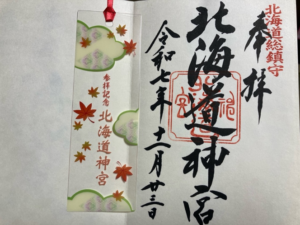 北海道総鎮守
奉拝
北海道神宮
令和七年十一月廿三日
参拝記念
北海道神宮